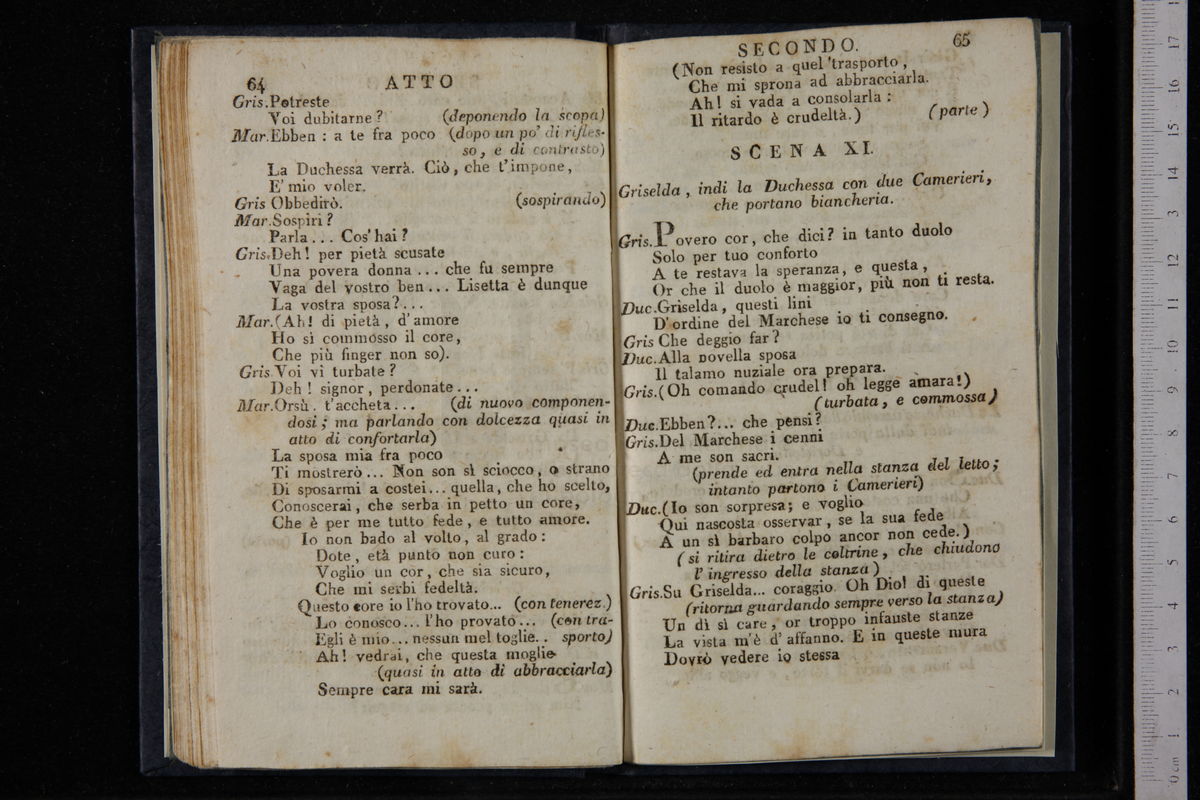 64 ATTO
Gris.Potreste
Voi dubitarne ? (deponendo la scopa)
Mar.Ebben : a te fra poco (dopo un po' di rifles-
so, e di contrasto)
La Duchessa verrà. Ciò, che t'impone,
E' mio voler.
Gris Obbedirò. (sospirando)
Mar.Sospiri ?
Parla... Cos' hai ?
Gris.Deh ! per pietà scusate
Una povera donna ... che fu sempre
Vaga del vostro ben... Lisetta è dunque
La vostra sposa?...
Mar.(Ah! di pietà , d'amore
Ho sì commosso il core,
Che più finger non so).
Gris.Voi vi turbate ?
Deh ! signor, perdonate...
Mar.Orsù. t'accheta... (di nuovo componen-
dosi ; ma parlando con dolcezza quasi in
atto di confortarla)
La sposa mia fra poco
Ti mostrerò... Non son sì sciocco, o strano
Di sposarmi a costei... quella, che ho scelto,
Conoscerai, che serba in petto un core,
Che è per me tutto fede, e tutto amore.
Io non bado al volto, al grado :
Dote, età punto non curo :
Voglio un cor, che sia sicuro,
Che mi serbi fedeltà.
Questo core io l'ho trovato... (con tenerez.)
Lo conosco... l'ho provato... (con tra-
Egli è mio... nessun mel toglie.. sporto)
Ah! vedrai, che questa moglie
(quasi in atto di abbracciarla)
Sempre cara mi sarà.
SECONDO. 65
(Non resisto a quel 'trasporto,
Che mi sprona ad abbracciarla.
Ah! si vada a consolarla :
Il ritardo è crudeltà.) (parte)
SCENA XI.
Griselda, indi la Duchessa con due Camerieri,
che portano biancheria.
Gris.Povero cor, che dici? in tanto duolo
Solo per tuo conforto
A te restava la speranza, e questa,
Or che il duolo è maggior, più non ti resta.
Duc.Griselda, questi lini
D'ordine del Marchese io ti consegno.
Gris Che deggio far ?
Duc.Alla novella sposa
Il talamo nuziale ora prepara.
Gris.(Oh comando crudel! oh legge amara!)
(turbata, e commossa)
Duc.Ebben?... che pensi?
Gris.Del Marchese i cenni
A me son sacri.
(prende ed entra nella stanza del letto;
intanto partono i Camerieri)
Duc.(Io son sorpresa; e voglio
Qui nascosta osservar, se la sua fede
A un sì barbaro colpo ancor non cede.)
(si ritira dietro le coltrine, che chiudono
l'ingresso della stanza)
Gris.Su Griselda... coraggio Oh Dio! di queste
(ritorna guardando sempre verso la stanza)
Un dì sì care, or troppo infauste stanze
La vista m'è d'affanno. E in queste mura
Dovrò vedere io stessa